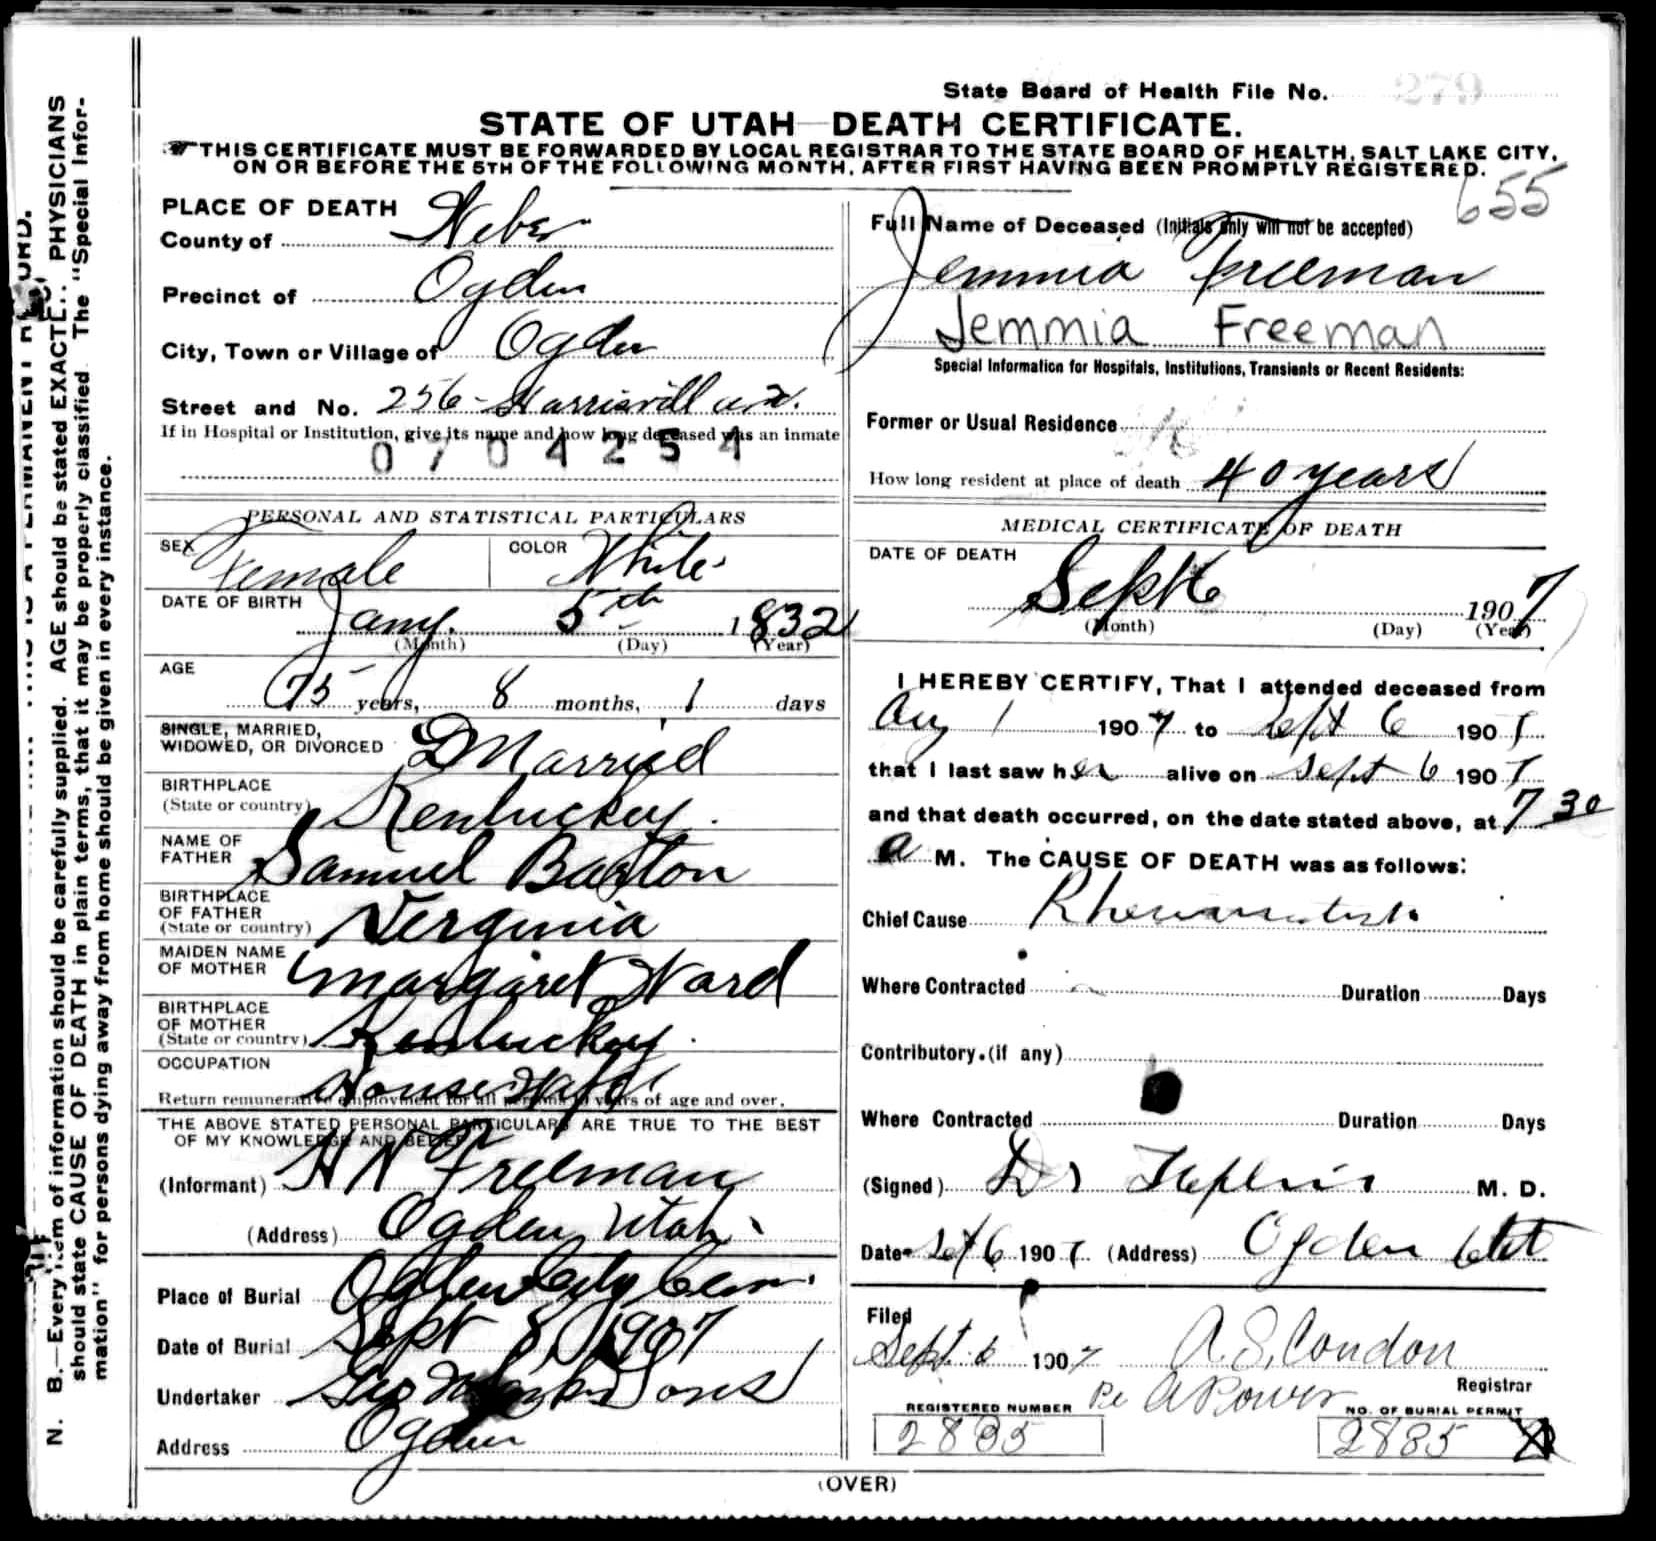 State Board of Health File No. 279
STATE OF UTAH—DEATH CERTIFICATE.
THIS CERTIFICATE MUST BE FORWARDED BY LOCAL REGISTRAR TO THE STATE BOARD OF HEALTH, SALT LAKE CITY,
ON OR BEFORE THE 5TH OF THE FOLLOWING MONTH, AFTER FIRST HAVING BEEN PROMPTLY REGISTERED.
655
PLACE OF DEATH
County of Weber
Precinct of Ogden
City, Town or Village of Ogden
Street and No. 256 - Harrisvill ave.
If in Hospital or Institution, give its name and how long deceased was an inmate
0704254
PERSONAL AND STATISTICAL PARTICULARS
SEX Female COLOR White
DATE OF BIRTH
Jany. 5th 1832
(Month) (Day) (Year)
AGE
75 years, 8 months, 1 days
SINGLE, MARRIED,
WIDOWED, OR DIVORCED Married
BIRTHPLACE
(State or country) Kentuckey.
NAME OF
FATHER Samuel Barton
BIRTHPLACE
OF FATHER
(State or country) Verginia
MAIDEN NAME
OF MOTHER Margaret Ward
BIRTHPLACE
OF MOTHER
(State or country) Kentuckey.
OCCUPATION
House Wife
Return remunerative employment for all persons years of age and over.
THE ABOVE STATED PERSONAL PARTICULARS ARE TRUE TO THE BEST
OF MY KNOWLEDGE AND BELIEF
(Informant) H N Freeman
(Address) Ogden, Utah
Place of Burial Ogden City Cem.
Date of Burial Sept 8, 1907
Undertaker Sons
Address Ogden
Full Name of Deceased (Initials only will not be accepted)
Jemmia Freeman
Jemmia Freeman
Special Information for Hospitals, Institutions, Transients or Recent Residents:
Former or Usual Residence
How long resident at place of death 40 years
MEDICAL CERTIFICATE OF DEATH
DATE OF DEATH
Sept 6 1907
(Month) (Day) (Year)
I HEREBY CERTIFY, That I attended deceased from
Aug 1 1907 to Sept 6 1907
that I last saw her alive on Sept 6 1907
and that death occurred, on the date stated above, at 7 30
a M. The CAUSE OF DEATH was as follows:
Chief Cause
Where Contracted Duration Days
Contributory. (if any)
Where Contracted Duration Days
(Signed) Dr M. D.
Date 6 1907 (Address) Ogden Ut
Filed
Sept. 6 1907 A. S. Condon
Registrar
REGISTERED NUMBER
2885
NO. OF BURIAL PERMIT
2885
(OVER)
N. B.—Every item of information should be carefully supplied. AGE should be stated EXACTLY. PHYSICIANS
should state CAUSE OF DEATH in plain terms, that it may be properly classified. The "Special Infor-
mation" for persons dying away from home should be given in every instance.